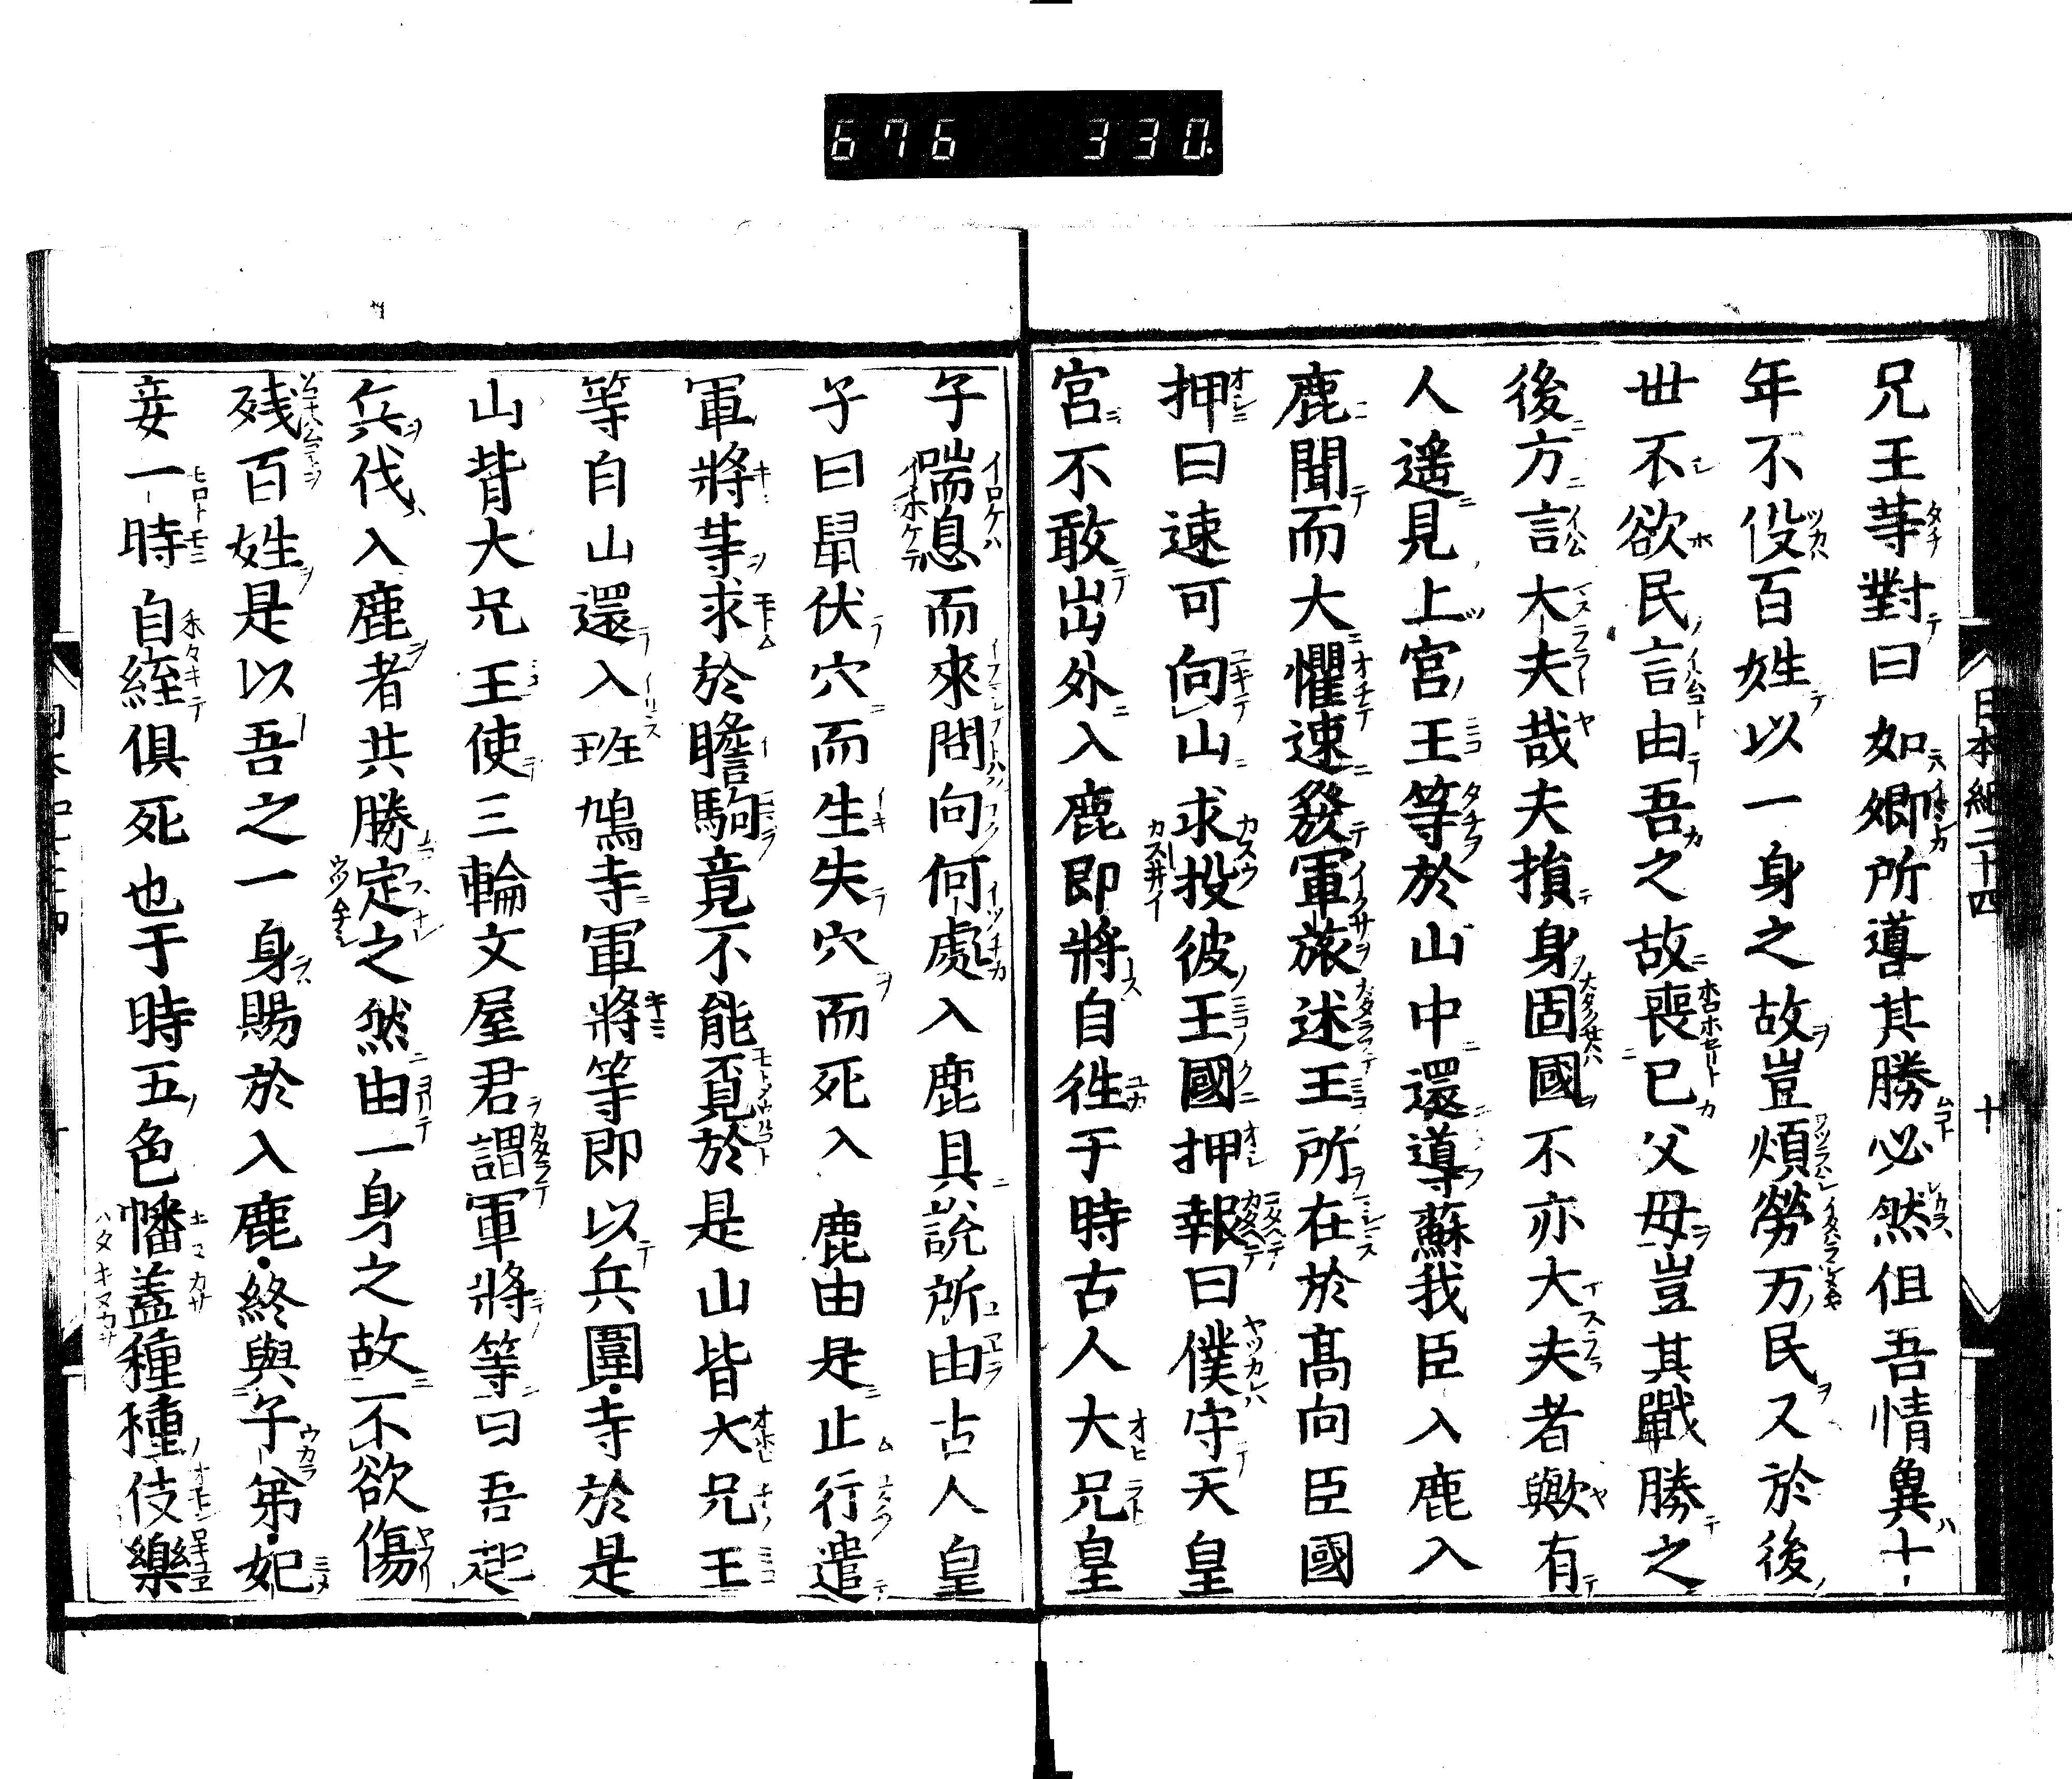 676 330.
日本紀二十四 十
兄王等對曰如卿所導其勝必然但吾情兾十
年不役百姓以一身之故豈煩勞万民又於後
世不欲民言由吾之故喪已父母豈其戰勝之
後方言大夫哉夫損身固國不亦大夫者歟有
人遥見上宮王等於山中還導蘇我臣入鹿入
鹿聞而大懼速發軍旅述王所在於髙向臣國
押曰速可向山求投彼王國押報曰僕守天皇
宮不敢出外入鹿即將自往于時古人大兄皇
子喘息而來問向何處入鹿具說所由古人皇
子曰鼠伏穴而生失穴而死入鹿由是止行遣
軍將等求於膽駒竟不能覓於是山背大兄王
等自山還入班鳩寺軍將等即以兵圍寺於是
山背大兄王使三輪文屋君謂軍將等曰吾起
兵伐入鹿者共勝定之然由一身之故不欲傷
残百姓是以吾之一身賜於入鹿終與子弟妃
妾一時自絰俱死也于時五色幡盖種種伎樂